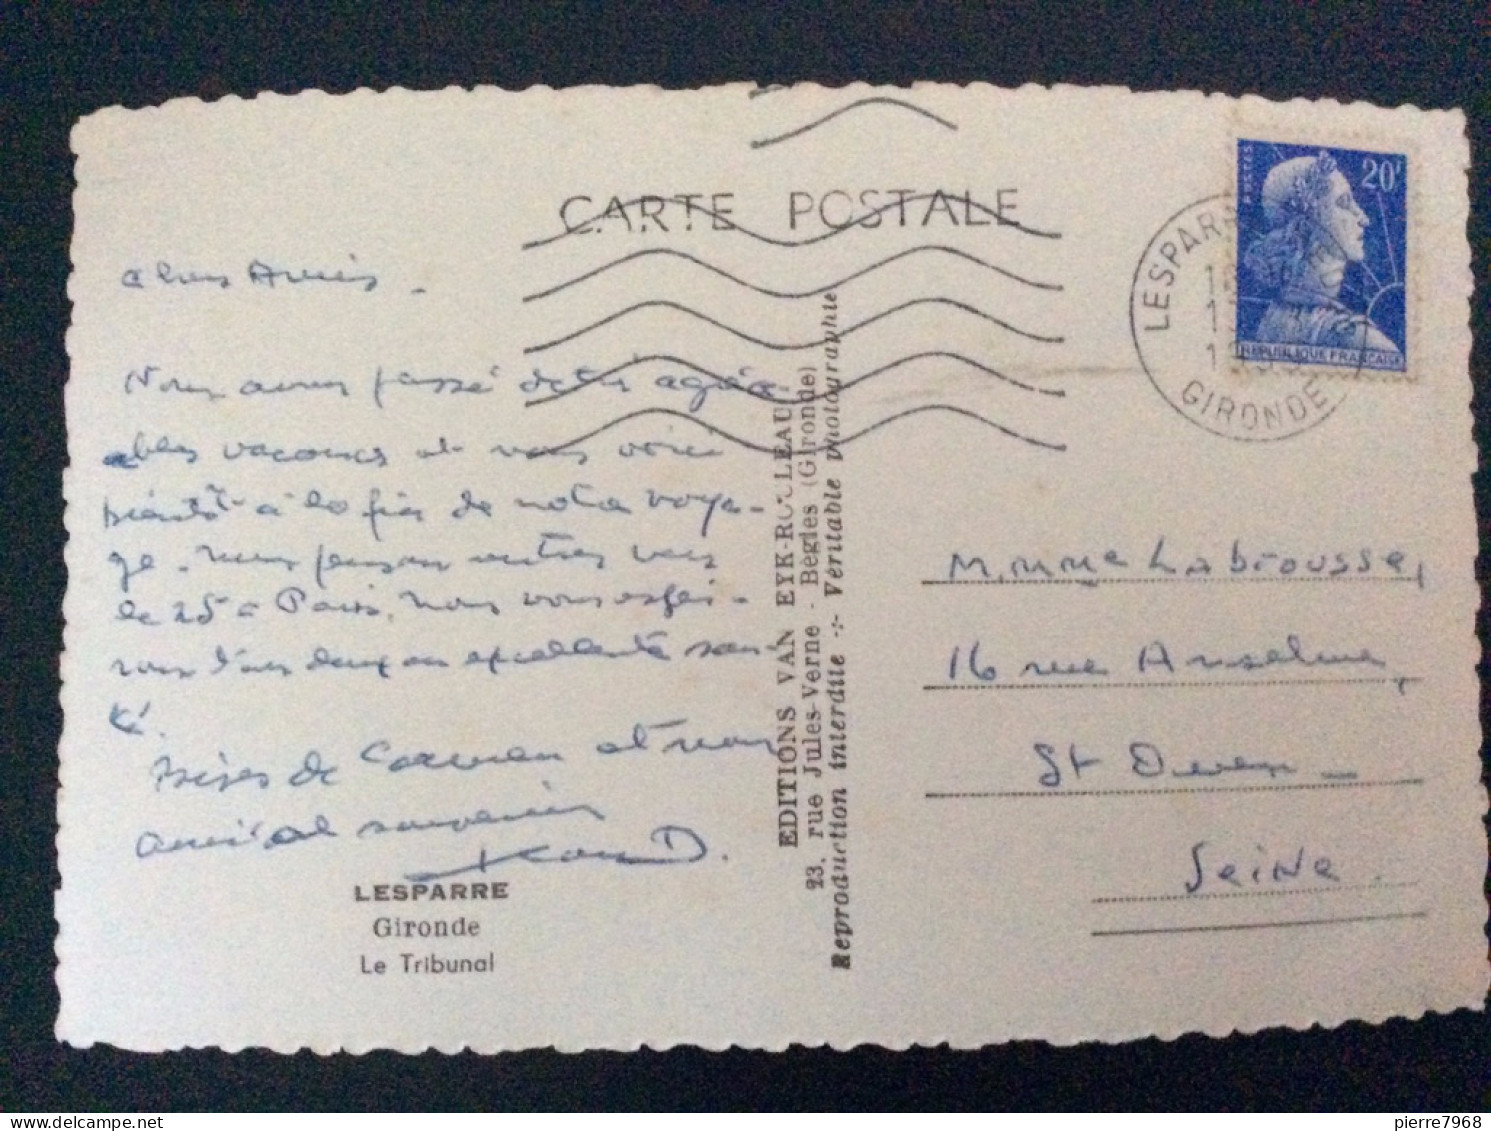 CARTE POSTALE
20F
POSTES
REPUBLIQUE FRANÇAISE
LESPARRE
GIRONDE
chers Amis.
Nous avons passé de très agré-
ables vacances et nous voici
bientôt à la fin de notre voya-
ge. Nous pensons rentrer vers
le 25 à Paris. Nous vous espé-
rons tous deux en excellente san-
té.
Bises de Carmen et mon
amical souvenir
Jean D.
LESPARRE
Gironde
Le Tribunal
EDITIONS VAN EYK-ROULEAU
23, rue Jules-Verne - Bègles (Gironde)
Reproduction interdite -:- Véritable photographie
M. Mme Labrousse,
16 rue Anselme,
St Ouen -
Seine.
pierre7968